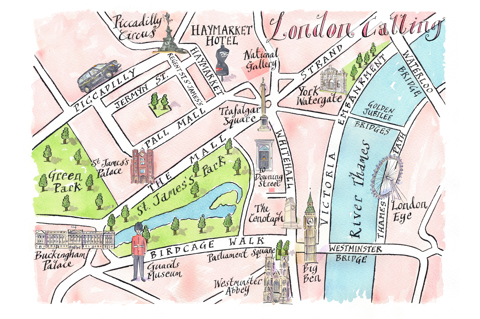 London Calling
Piccadilly
Circus
HAYMARKET
HOTEL
National
Gallery
HAYMARKET
STRAND
WATERLOO
BRIDGE
EMBANKMENT
PICCADILLY
JERMYN ST.
PALL MALL
Trafalgar
Square
York
Watergate
GOLDEN
JUBILEE
BRIDGES
St James's
Palace
THE MALL
WHITEHALL
Green
Park
St. James's Park
Downing
Street
VICTORIA
River Thames
THAMES PATH
London
Eye
The
Cenotaph
Buckingham
Palace
BIRDCAGE WALK
Guards
Museum
Parliament Square
WESTMINSTER
BRIDGE
Westminster
Abbey
Big
Ben